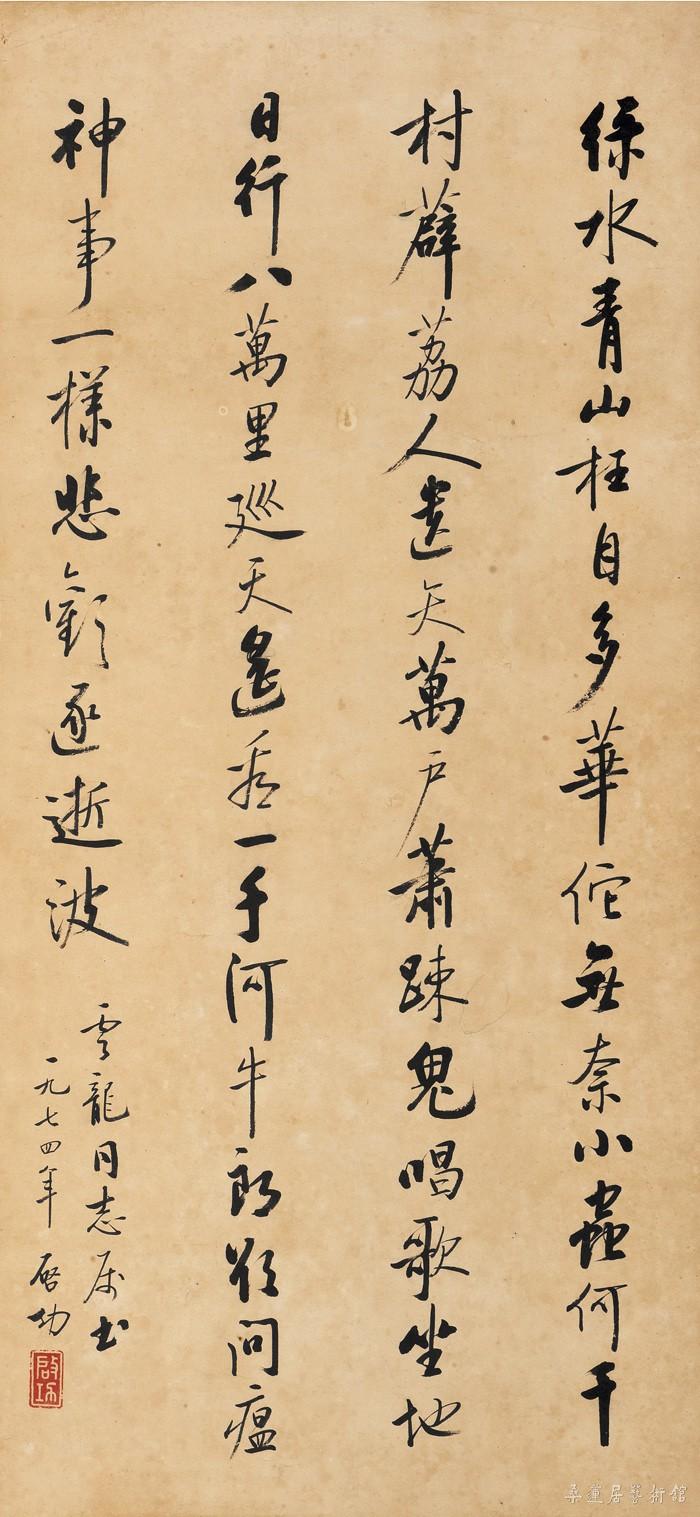 綠水青山枉自多華佗無奈小蟲何千
村薜荔人遺矢萬戶蕭疎鬼唱歌坐地
日行八萬里巡天遙看一千河牛郎欲問瘟
神事一樣悲歡逐逝波
雲龍同志屬書
一九七四年 啓功
啟功
桑蓮居藝術館